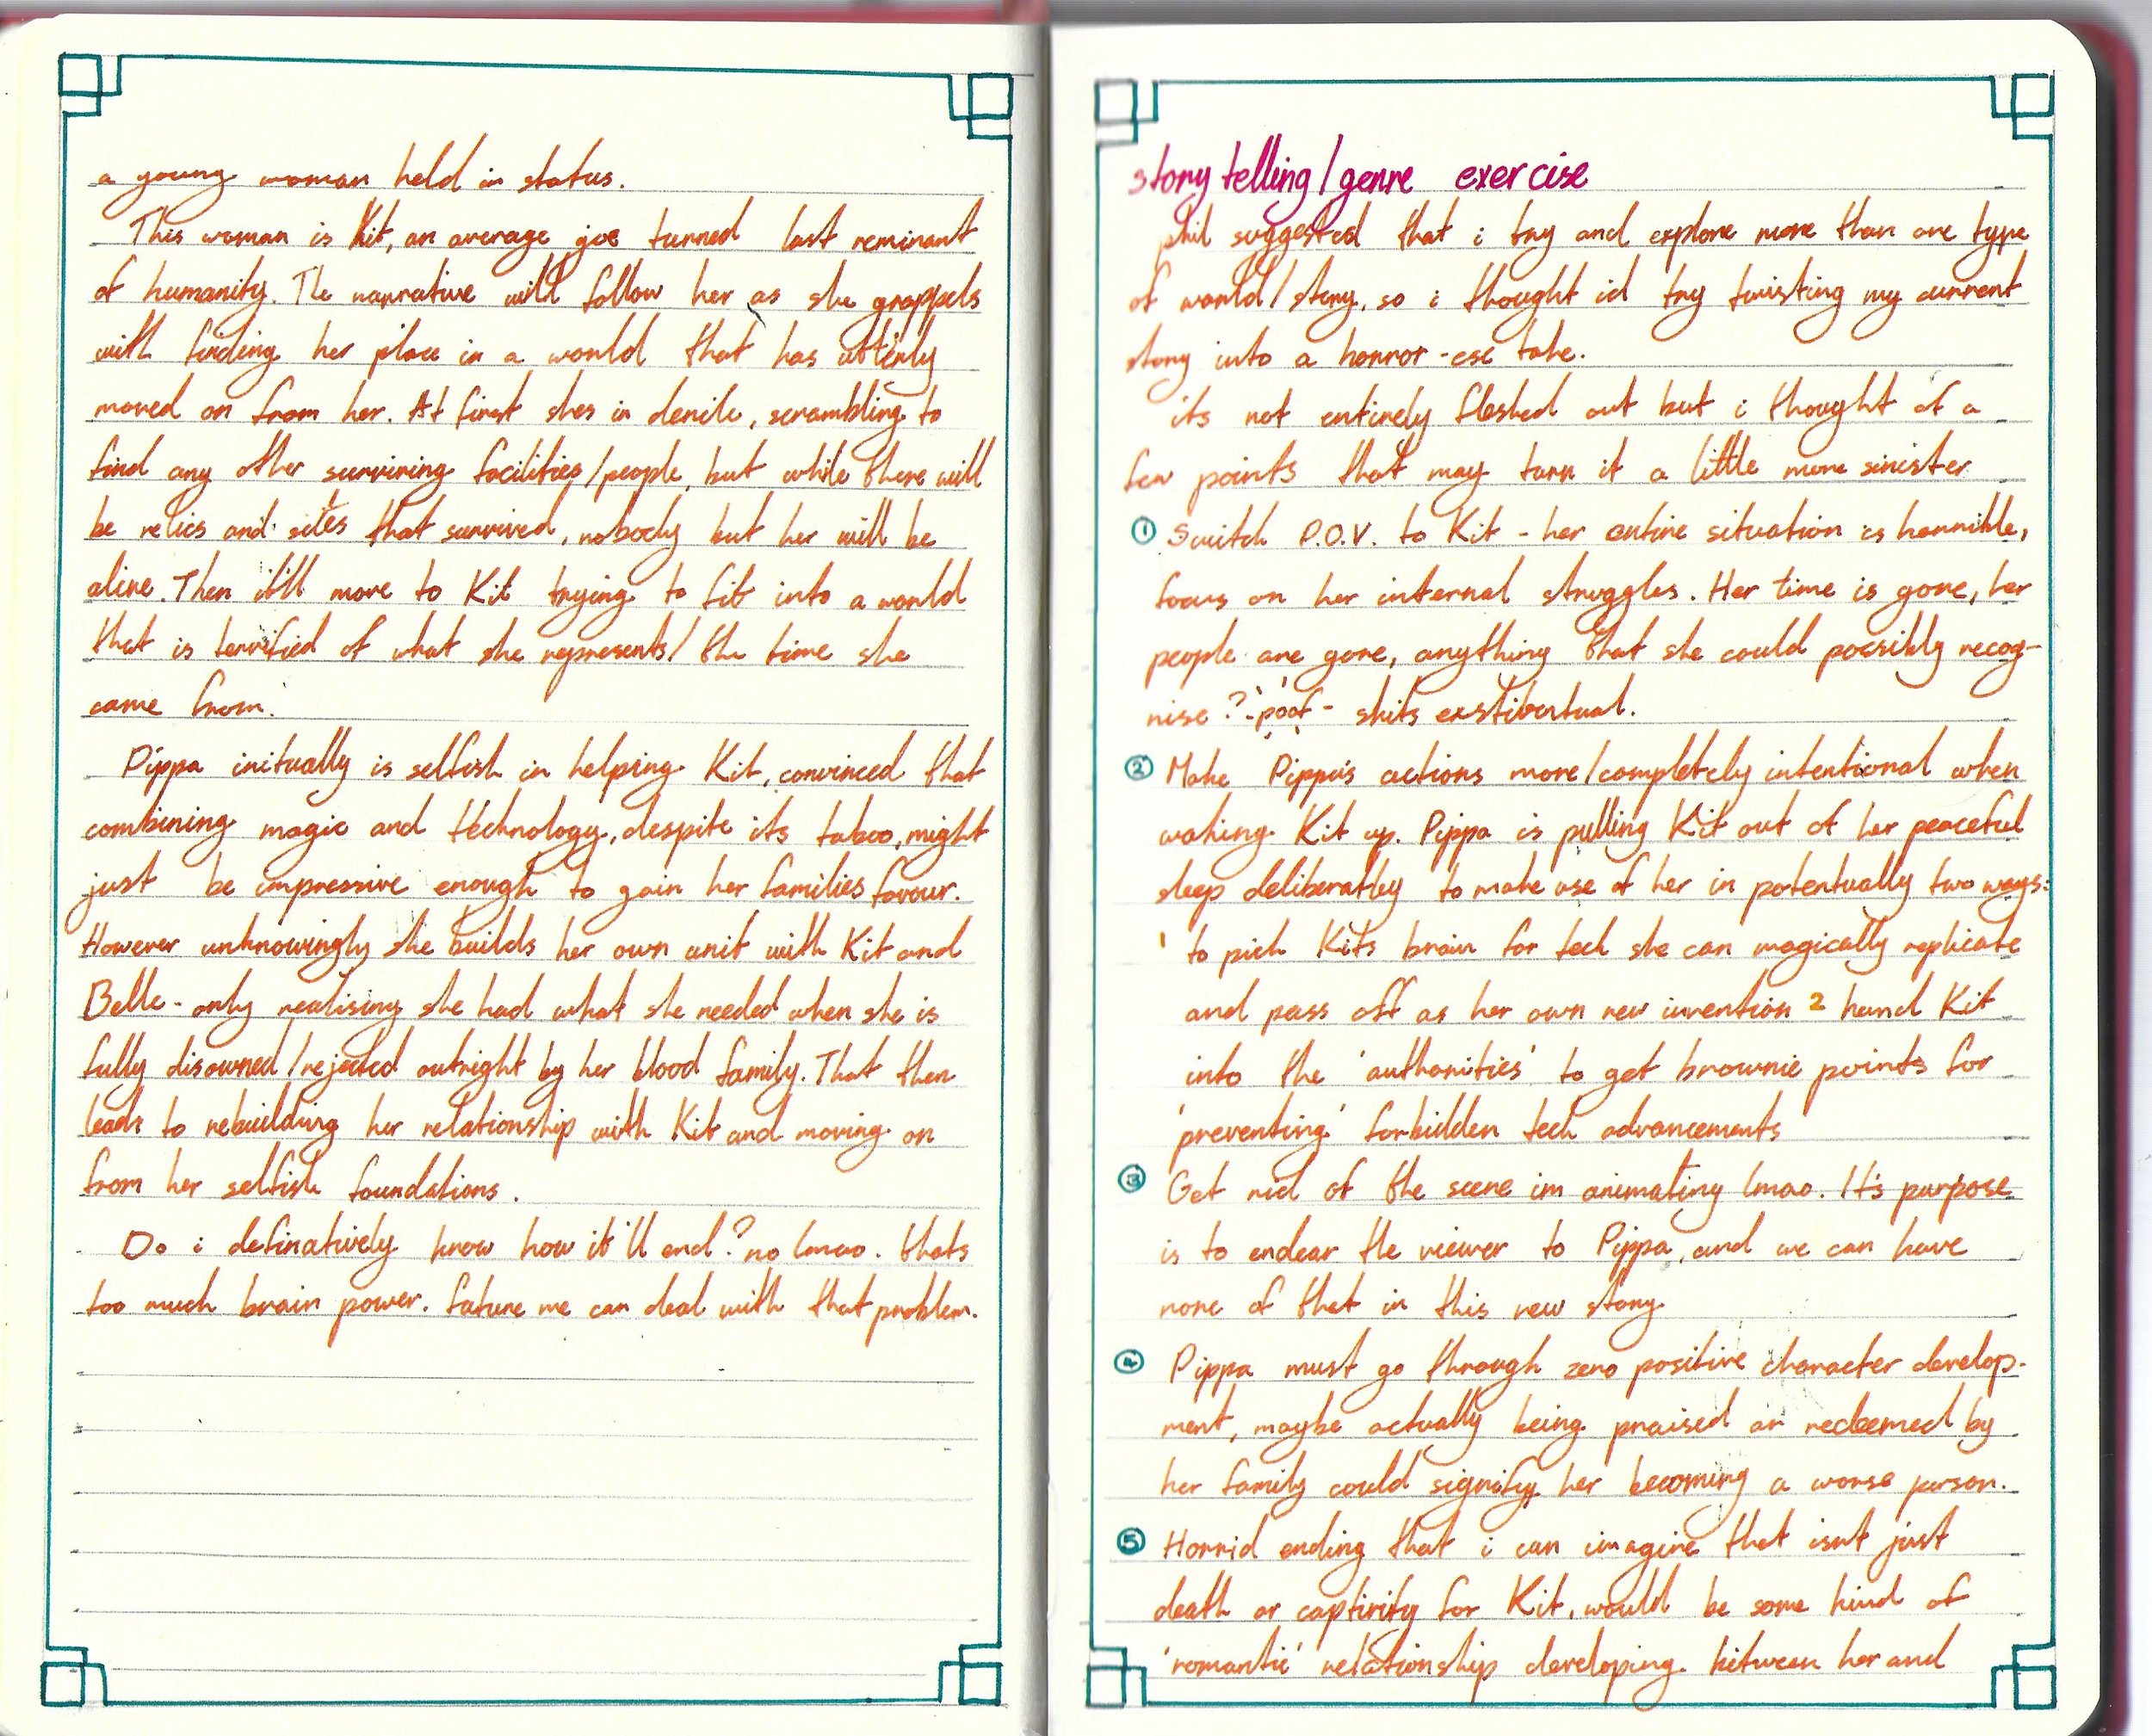 a young woman held in status.
This woman is Kit, an average joe turned last reminant
of humanity. The narrative will follow her as she grappels
with finding her place in a world that has utterly
moved on from her. At first shes in denile, scrambling to
find any other surviving facilities/people, but while there will
be relics and sites that survived, nobody but her will be
alive. Then it'll move to Kit trying to fit into a world
that is terrified of what she represents/ the time she
came from.
Pippa initually is selfish in helping Kit, convinced that
combining magic and technology, despite its taboo, might
just be impressive enough to gain her families favour.
However unknowingly she builds her own unit with Kit and
Belle - only realising she had what she needed when she is
fully disowned/rejected outright by her blood family. That then
leads to rebuilding her relationship with Kit and moving on
from her selfish foundations.
Do i definatively know how it'll end? no lmao. thats
too much brain power. future me can deal with that problem.
story telling/genre exercise
phil suggested that i try and explore more than one type
of world/story, so i thought id try twisting my current
story into a horror-ese take.
its not entirely fleshed out but i thought of a
few points that may turn it a little more sinister
① Switch P.O.V. to Kit - her entire situation is horrible,
focus on her internal struggles. Her time is gone, her
people are gone, anything that she could possibly recog-
nise? -'poof'- shits exstibentual.
② Make Pippa's actions more/completely intentional when
waking Kit up. Pippa is pulling Kit out of her peaceful
sleep deliberatley to make use of her in potentually two ways:
1 to pick Kits brain for tech she can magically replicate
and pass off as her own new invention 2 hand Kit
into the 'authorities' to get brownie points for
'preventing' forbidden tech advancements
③ Get rid of the scene im animating lmao. It's purpose
is to endear the viewer to Pippa, and we can have
none of that in this new story
④ Pippa must go through zero positive character develop-
ment, maybe actually being praised or redeemed by
her family could signify her becoming a worse person.
⑤ Horrid ending that i can imagine that isnt just
death or captivity for Kit, would be some kind of
'romantic' relationship developing between her and